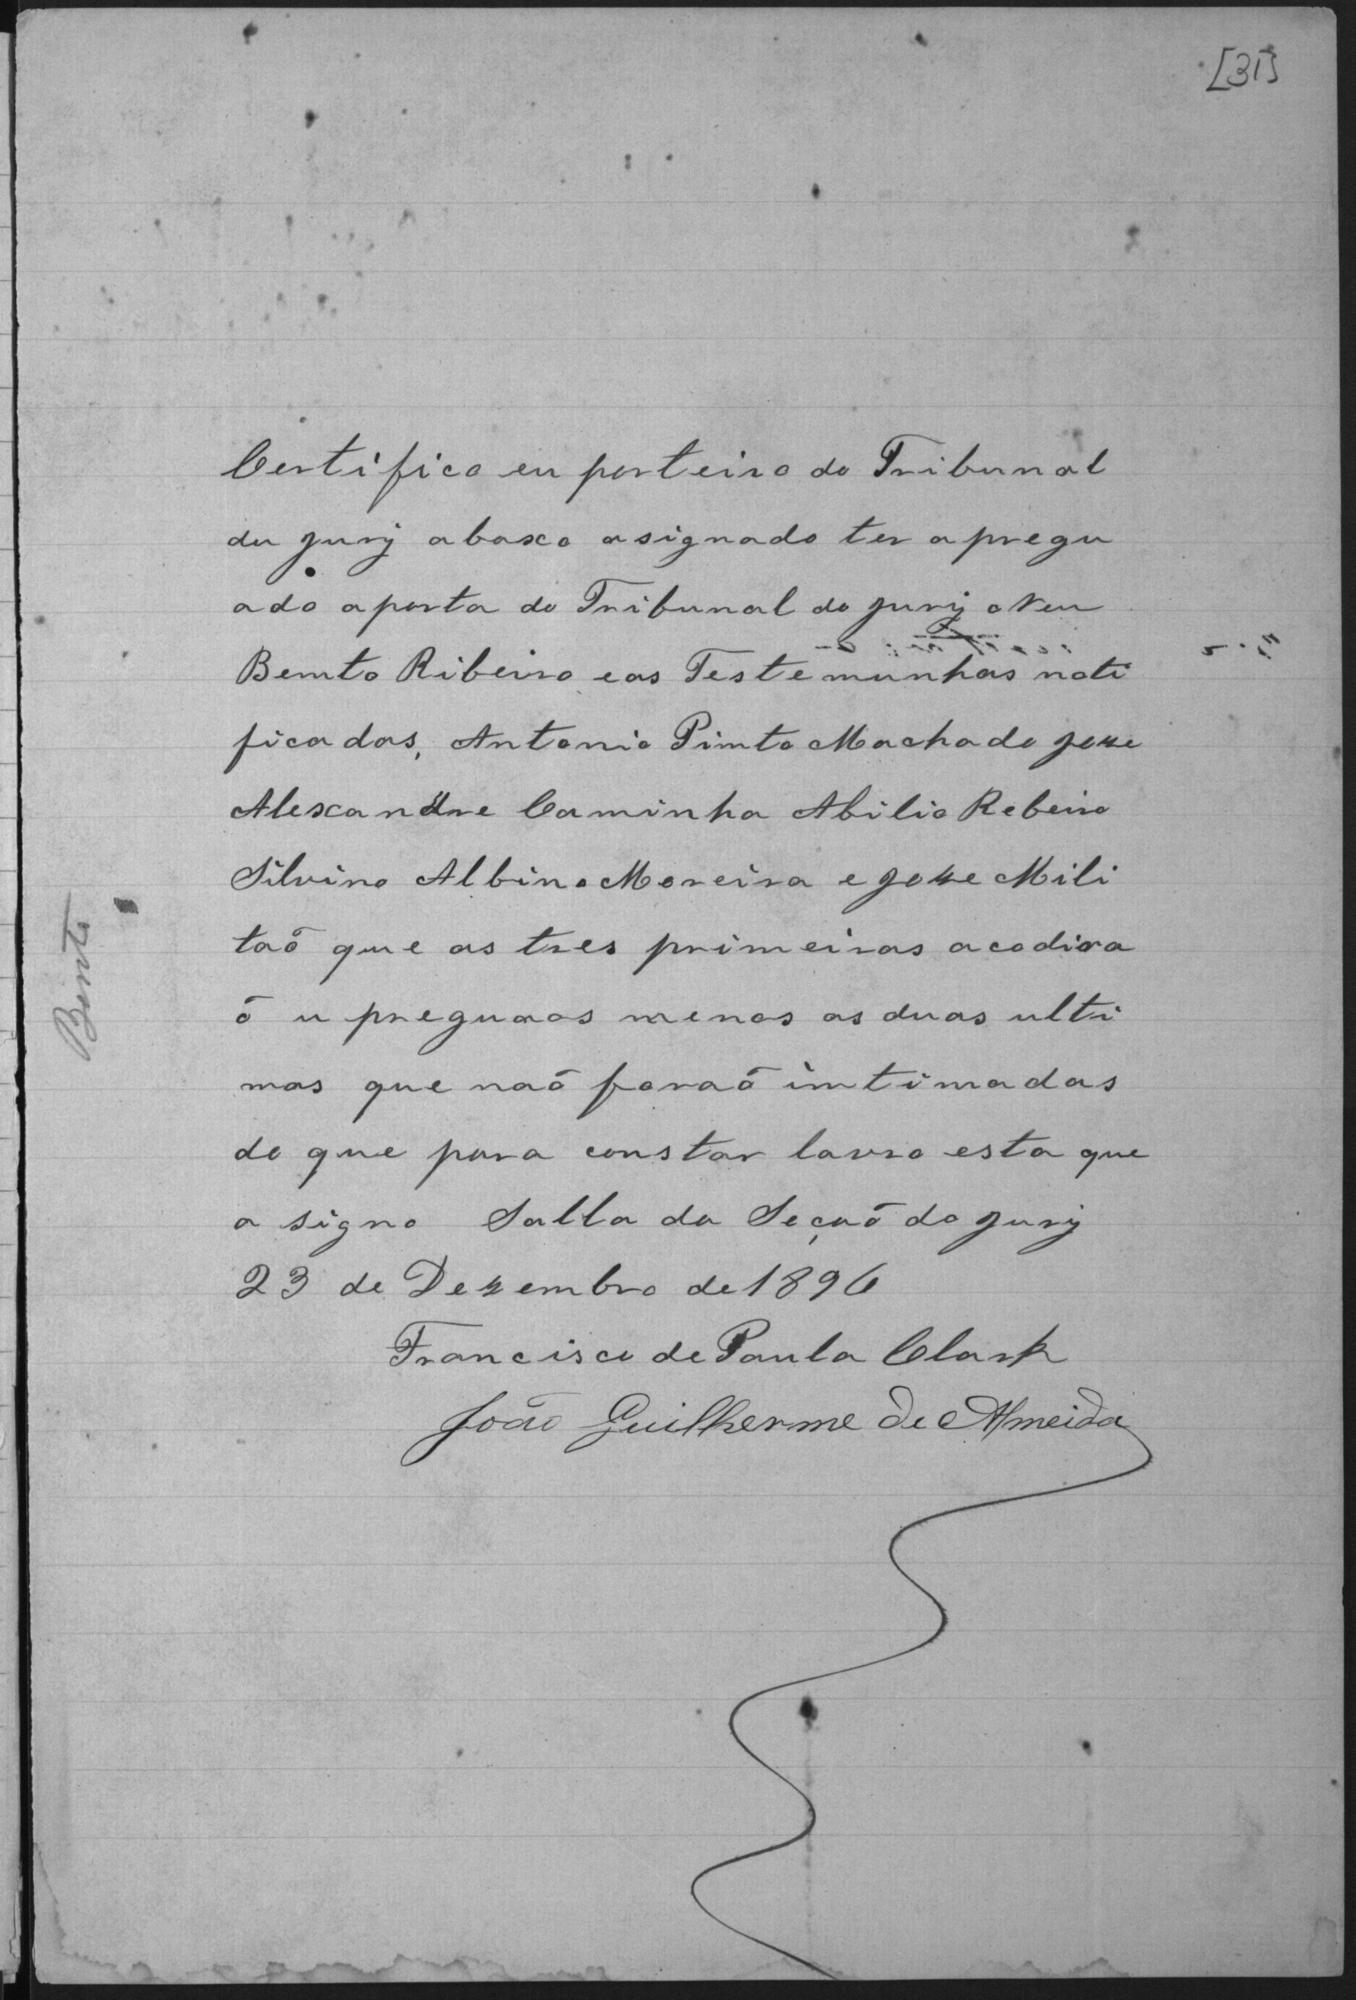 [31]
Certifico eu porteiro do Tribunal
du jury abaxo asignado ter apregu
ado aporta do Tribunal do jury o Reu
Bemto Ribeiro eas Testemunhas noti
ficadas, Antonio Pimto Machado joze
Alexandre Caminha Abilio Rebeiro
Silvino Albino Moreira e joze Mili
taõ que as tres primeiras acodira
õ u preguaos menos as duas ulti
mas que naõ foraõ imtimadas
do que para constar lavro esta que
a signo Salla da Seçaõ do jury
23 de Dezembro de 1896
Francisco de Paula Clark
João Guilherme de Almeida
Bento